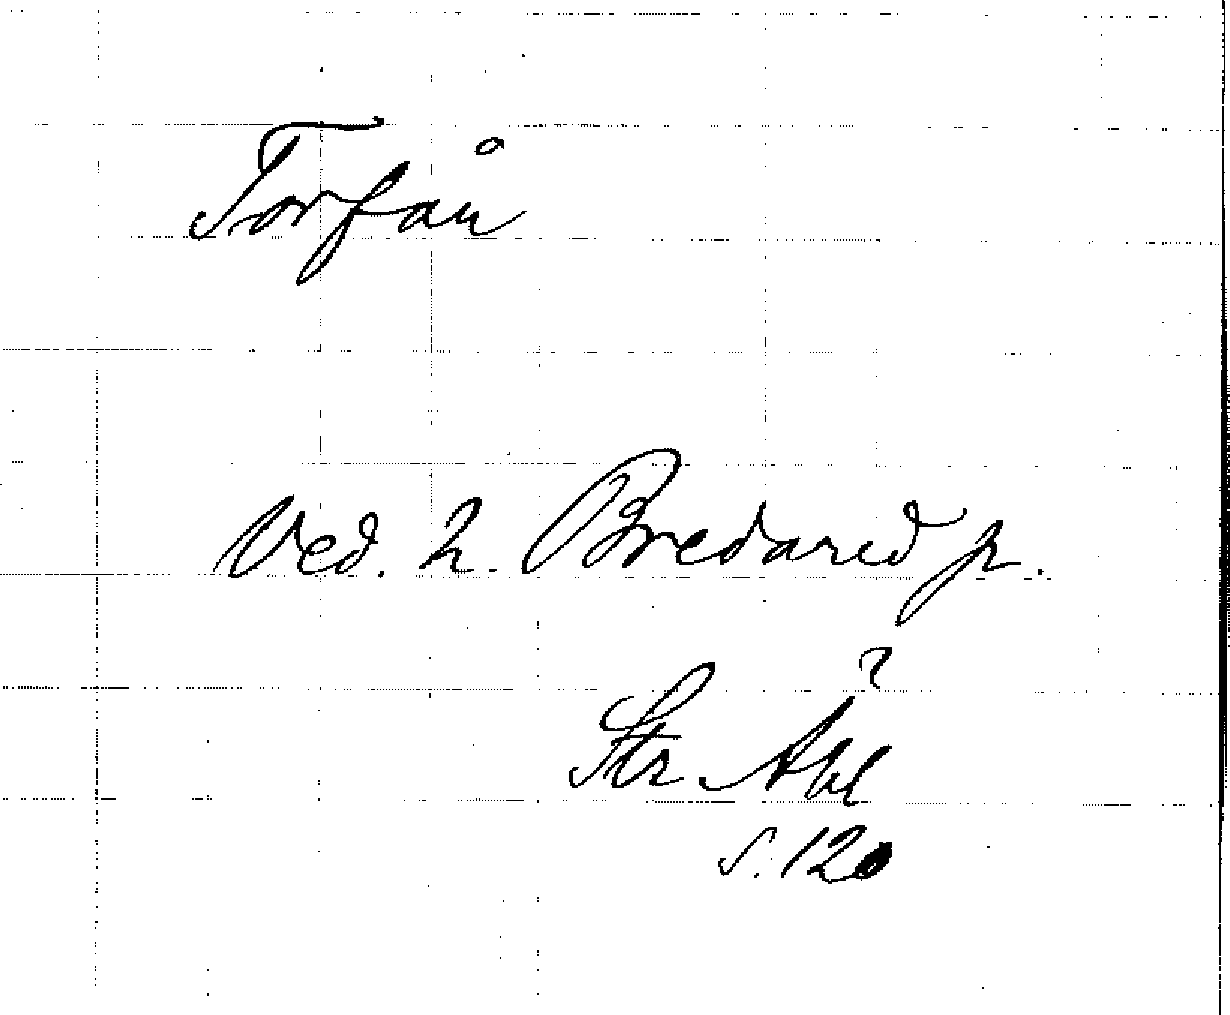 Torfån
Ved. h. Bredared p.
Str
s. 120